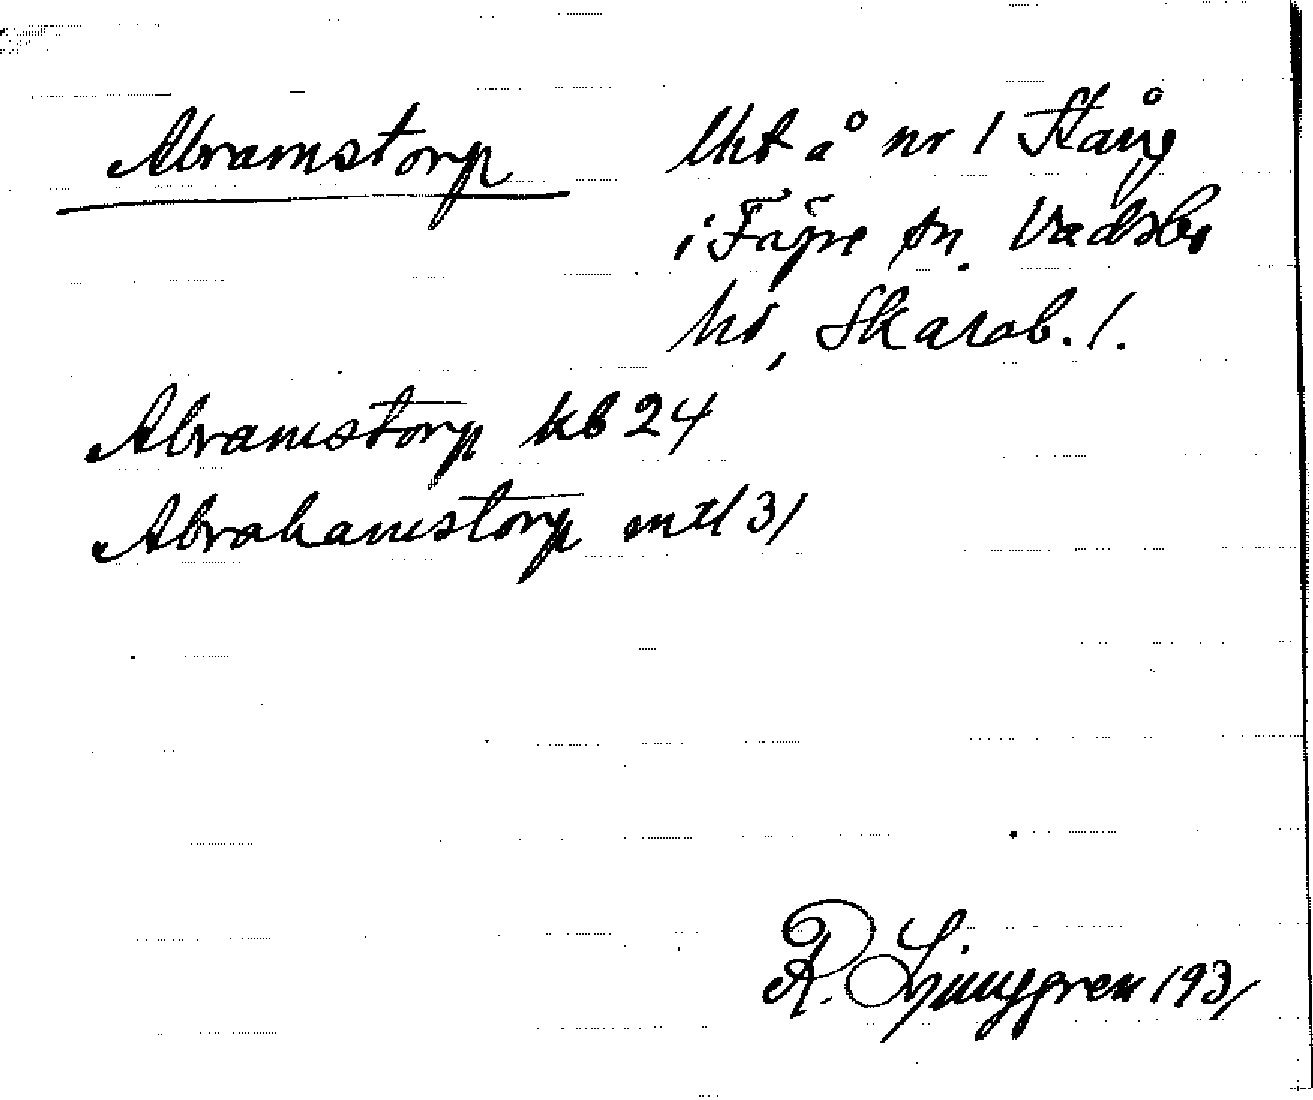 Abramstorp
Uht å nr 1 Stång
i Fägre sn. Vadsbo
hd, Skarab. l.
Abramstorp kb 24
Abrahamstorp mtl 31
R. Ljunggren 1931